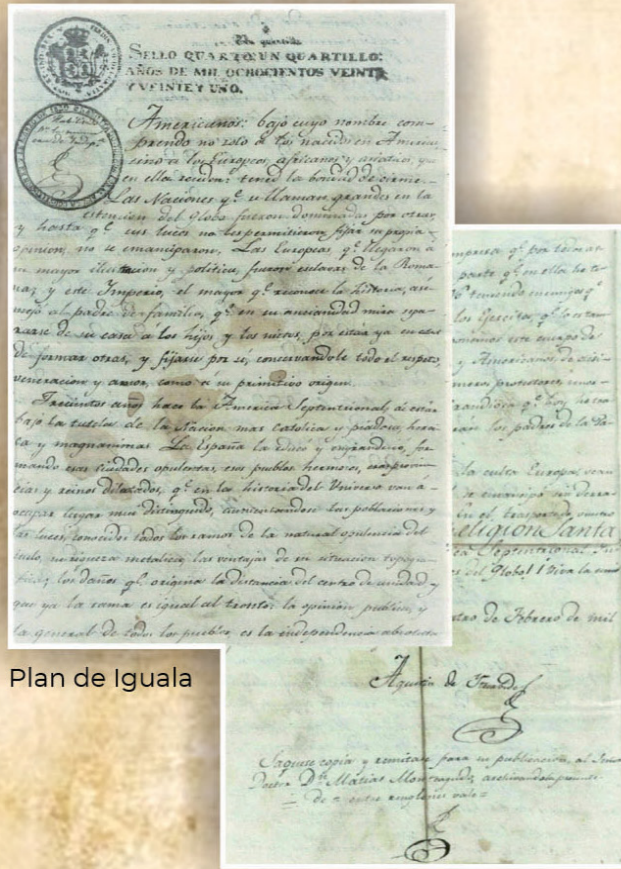 Un quartillo
SELLO QUARTO, UN QUARTILLO,
AÑOS DE MIL OCHOCIENTOS VEINTE
Y VEINTE Y UNO.
Americanos: bajo cuyo nombre com-
prendo no solo a los nacidos en America
sino a los Europeos, africanos y asiaticos, q.e
en ella residen: tened la bondad de oirme.
Las Naciones q.e se llaman grandes en la
estencion del globo fueron dominadas por otras,
y hasta q.e sus luces no les permitieron fijar su propia
opinion, no se emanciparon. Las Europeas q.e llegaron a
la mayor ilustracion y politica, fueron esclavas de la Roma-
na; y este Imperio, el mayor q.e reconoce la historia, ase-
mejó al padre de familia, q.e en su ancianidad mira sepa-
rarse de su casa a los hijos y los nietos, por estar ya en estado
de formar otras, y fijarse por sí, conservandole todo el respeto,
veneracion y amor, como a su primitivo origen.
Trecientos años hace la America Septentrional, de estar
bajo la tutela de la Nacion mas catolica y piadosa, heroi-
ca y magnanima. La España la educó y engrandeció, for-
mando esas ciudades opulentas, esos pueblos hermosos, esas provin-
cias y reinos dilatados, q.e en la historia del Universo van á
ocupar lugar mui distinguido, aumentandose las poblaciones y
las luces, conocidos todos los ramos de la natural opulencia del
suelo, su riqueza metalica, las ventajas de su situacion topogra-
fica; los daños q.e origina la distancia del centro de unidad, y
que ya la rama es igual al tronco: la opinion publica, y
la general de todos los pueblos, es la independencia absoluta
Plan de Iguala
parte q.e en ella
teniendo enemigos q.e
y Americanos, de
los padres de la Pa-
la culta Europa,
Religion Santa
ca Septentrional
del Globo! Viva la union
tro de Febrero de mil
Agustin de Iturbide
Saquese copia y remitase para su publicacion, al Señor
Doctor D.n Matias Monteagudo,
entre renglones vale =